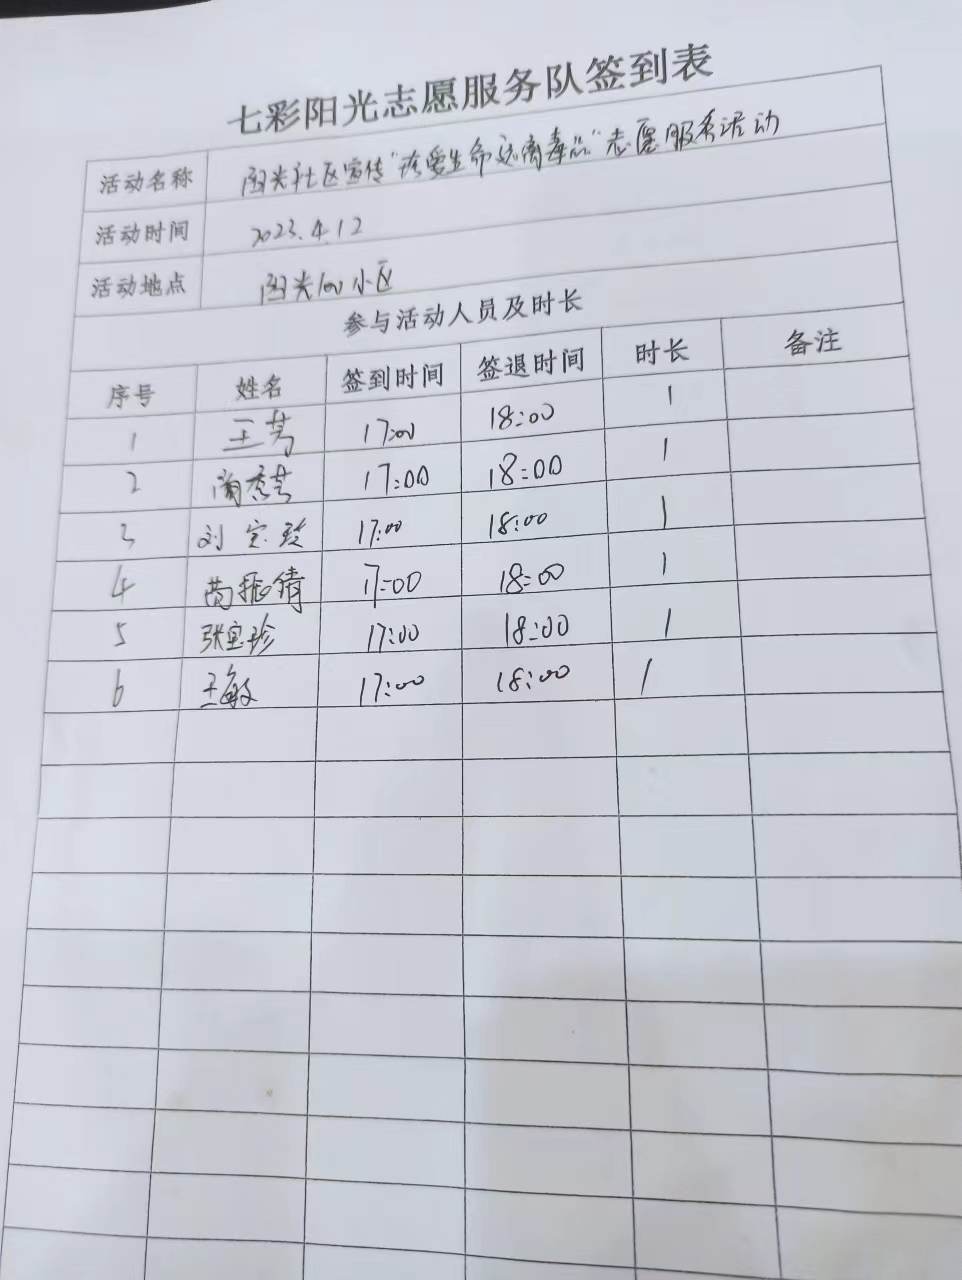 七彩阳光志愿服务队签到表
活动名称 社区宣传"珍爱生命远离毒品"志愿服务活动
活动时间 2023.4.12
活动地点 小区
参与活动人员及时长
序号 姓名 签到时间 签退时间 时长 备注
1 王芳 17:00 18:00 1
2 17:00 18:00 1
3 刘宝玲 17:00 18:00 1
4 17:00 18:00 1
5 张宝珍 17:00 18:00 1
6 王敏 17:00 18:00 1